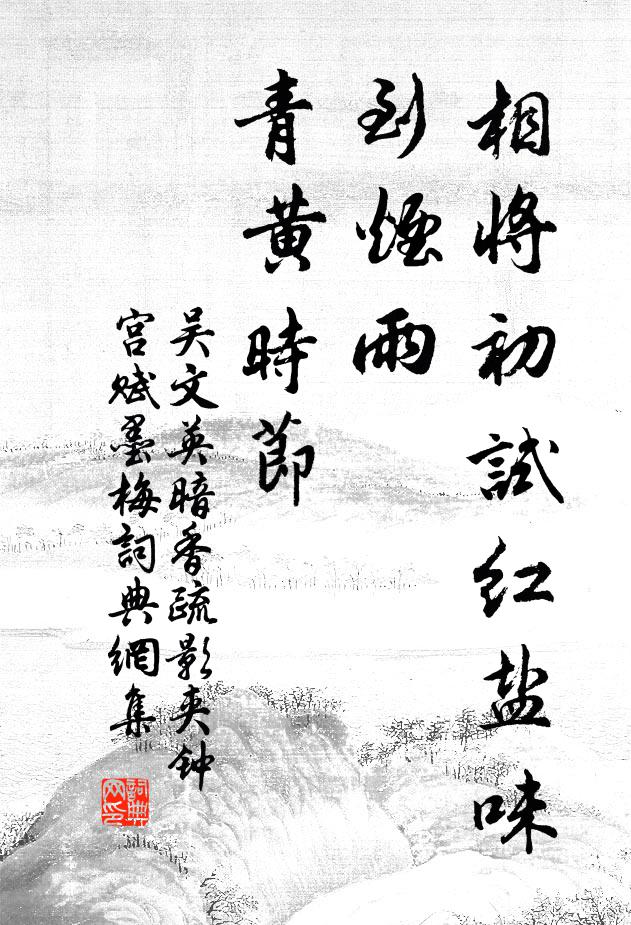 相將初試紅盐味
到煙雨
青黃時節
吴文英暗香疏影夹钟
宫赋墨梅詞典網集
詞典
网印